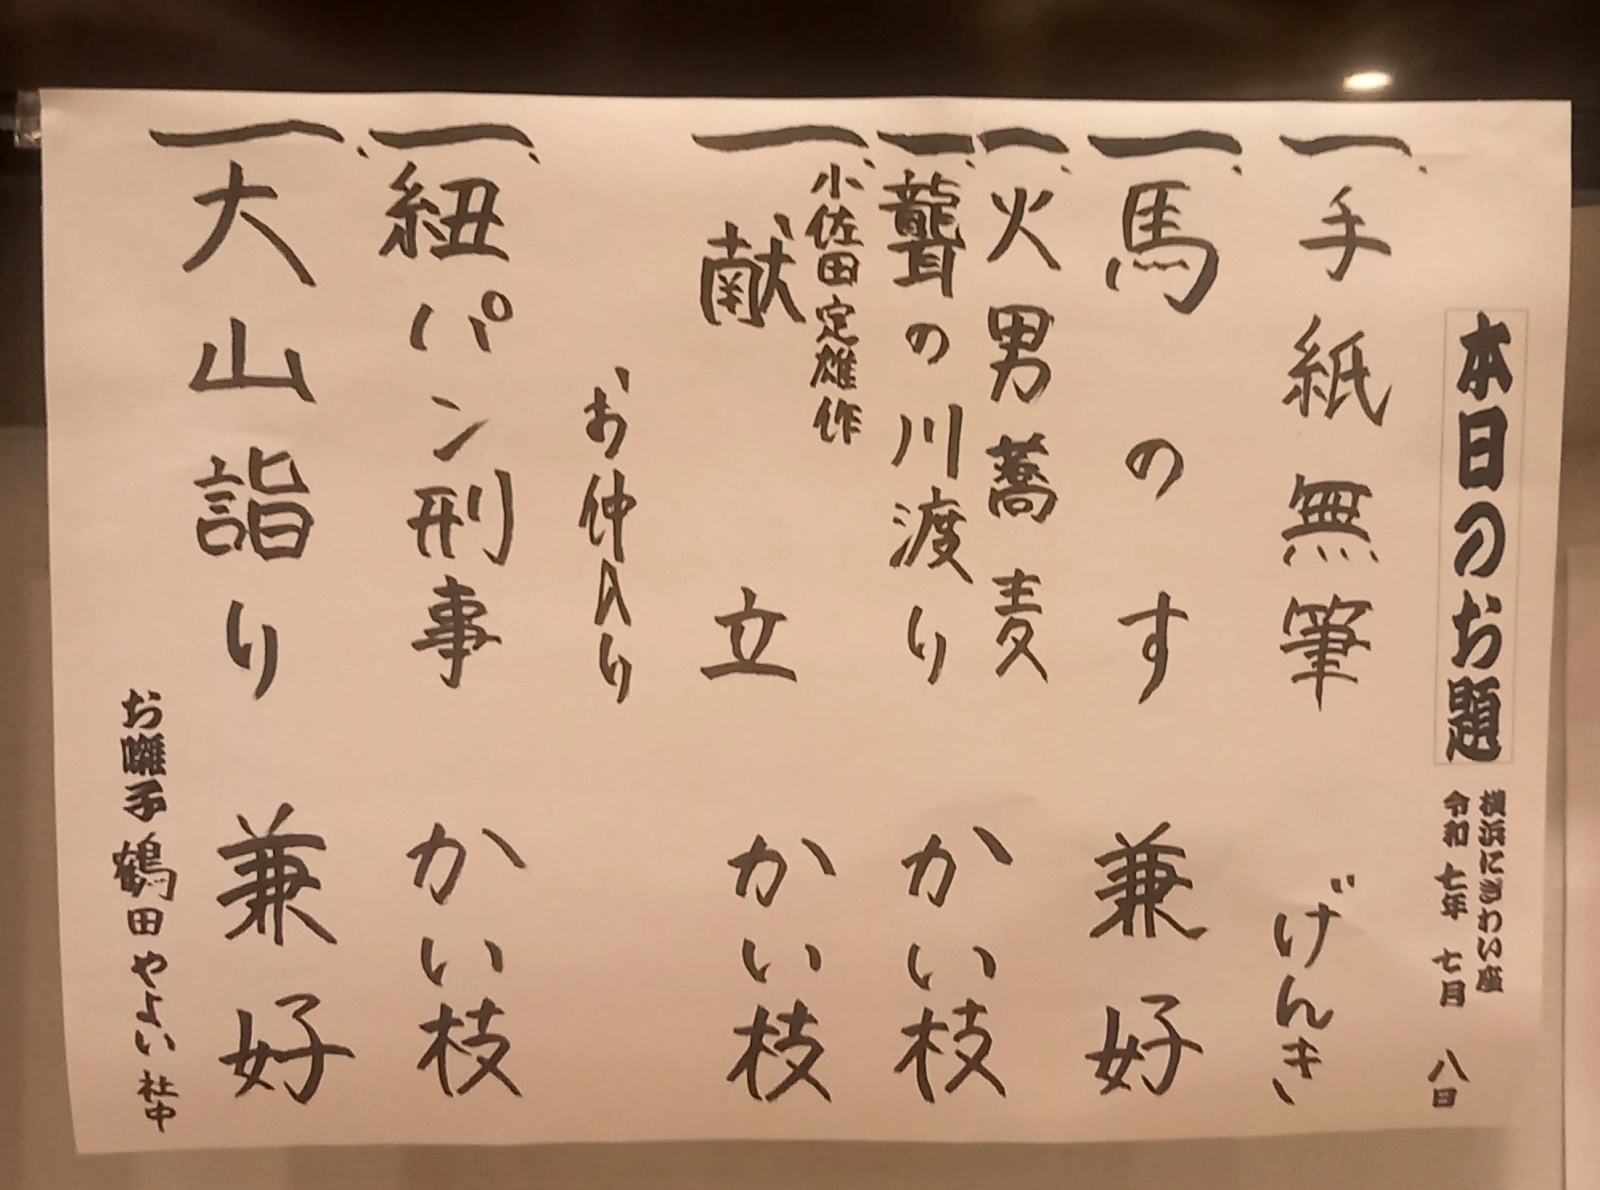 本日のお題
横浜にぎわい座
令和 七年 七月 八日
一、手紙無筆 げんき
一、馬のす 兼好
一、火男蕎麦
一、聾の川渡り かい枝
一、小佐田定雄作
献立 かい枝
お仲入り
一、紐パン刑事 かい枝
一、大山詣り 兼好
お囃子 鶴田やよい社中